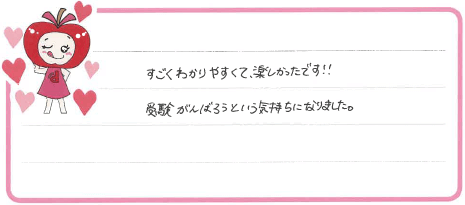 すごくわかりやすくて、楽しかったです!!
受験がんばろうという気持ちになりました。